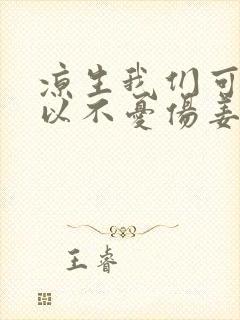 凉生我们可
以不憂傷姜
王睿